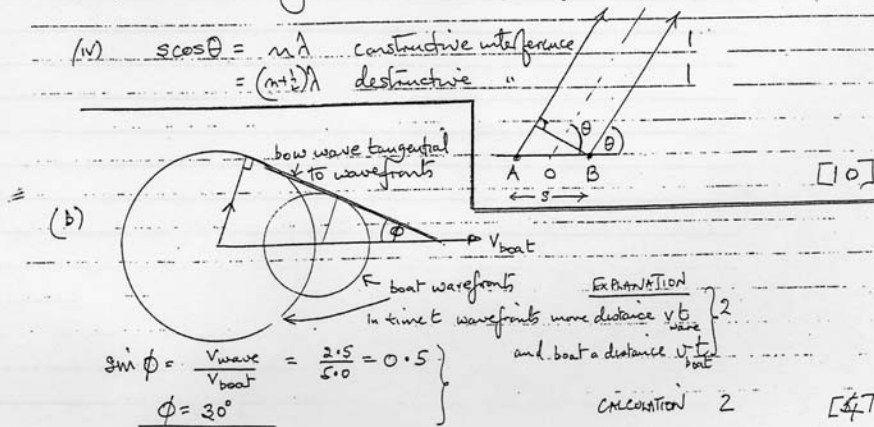 (iv) s cos θ = nλ constructive interference 1
= (n+½)λ destructive " 1
θ θ
A O B
s
[10]
bow wave tangential
to wavefronts
(b)
φ
V boat
boat wavefronts
EXPLANATION
In time t wavefronts move distance v wave t
and boat a distance v boat t
2
sin φ = V wave / V boat = 2.5 / 5.0 = 0.5
φ = 30°
CALCULATION 2